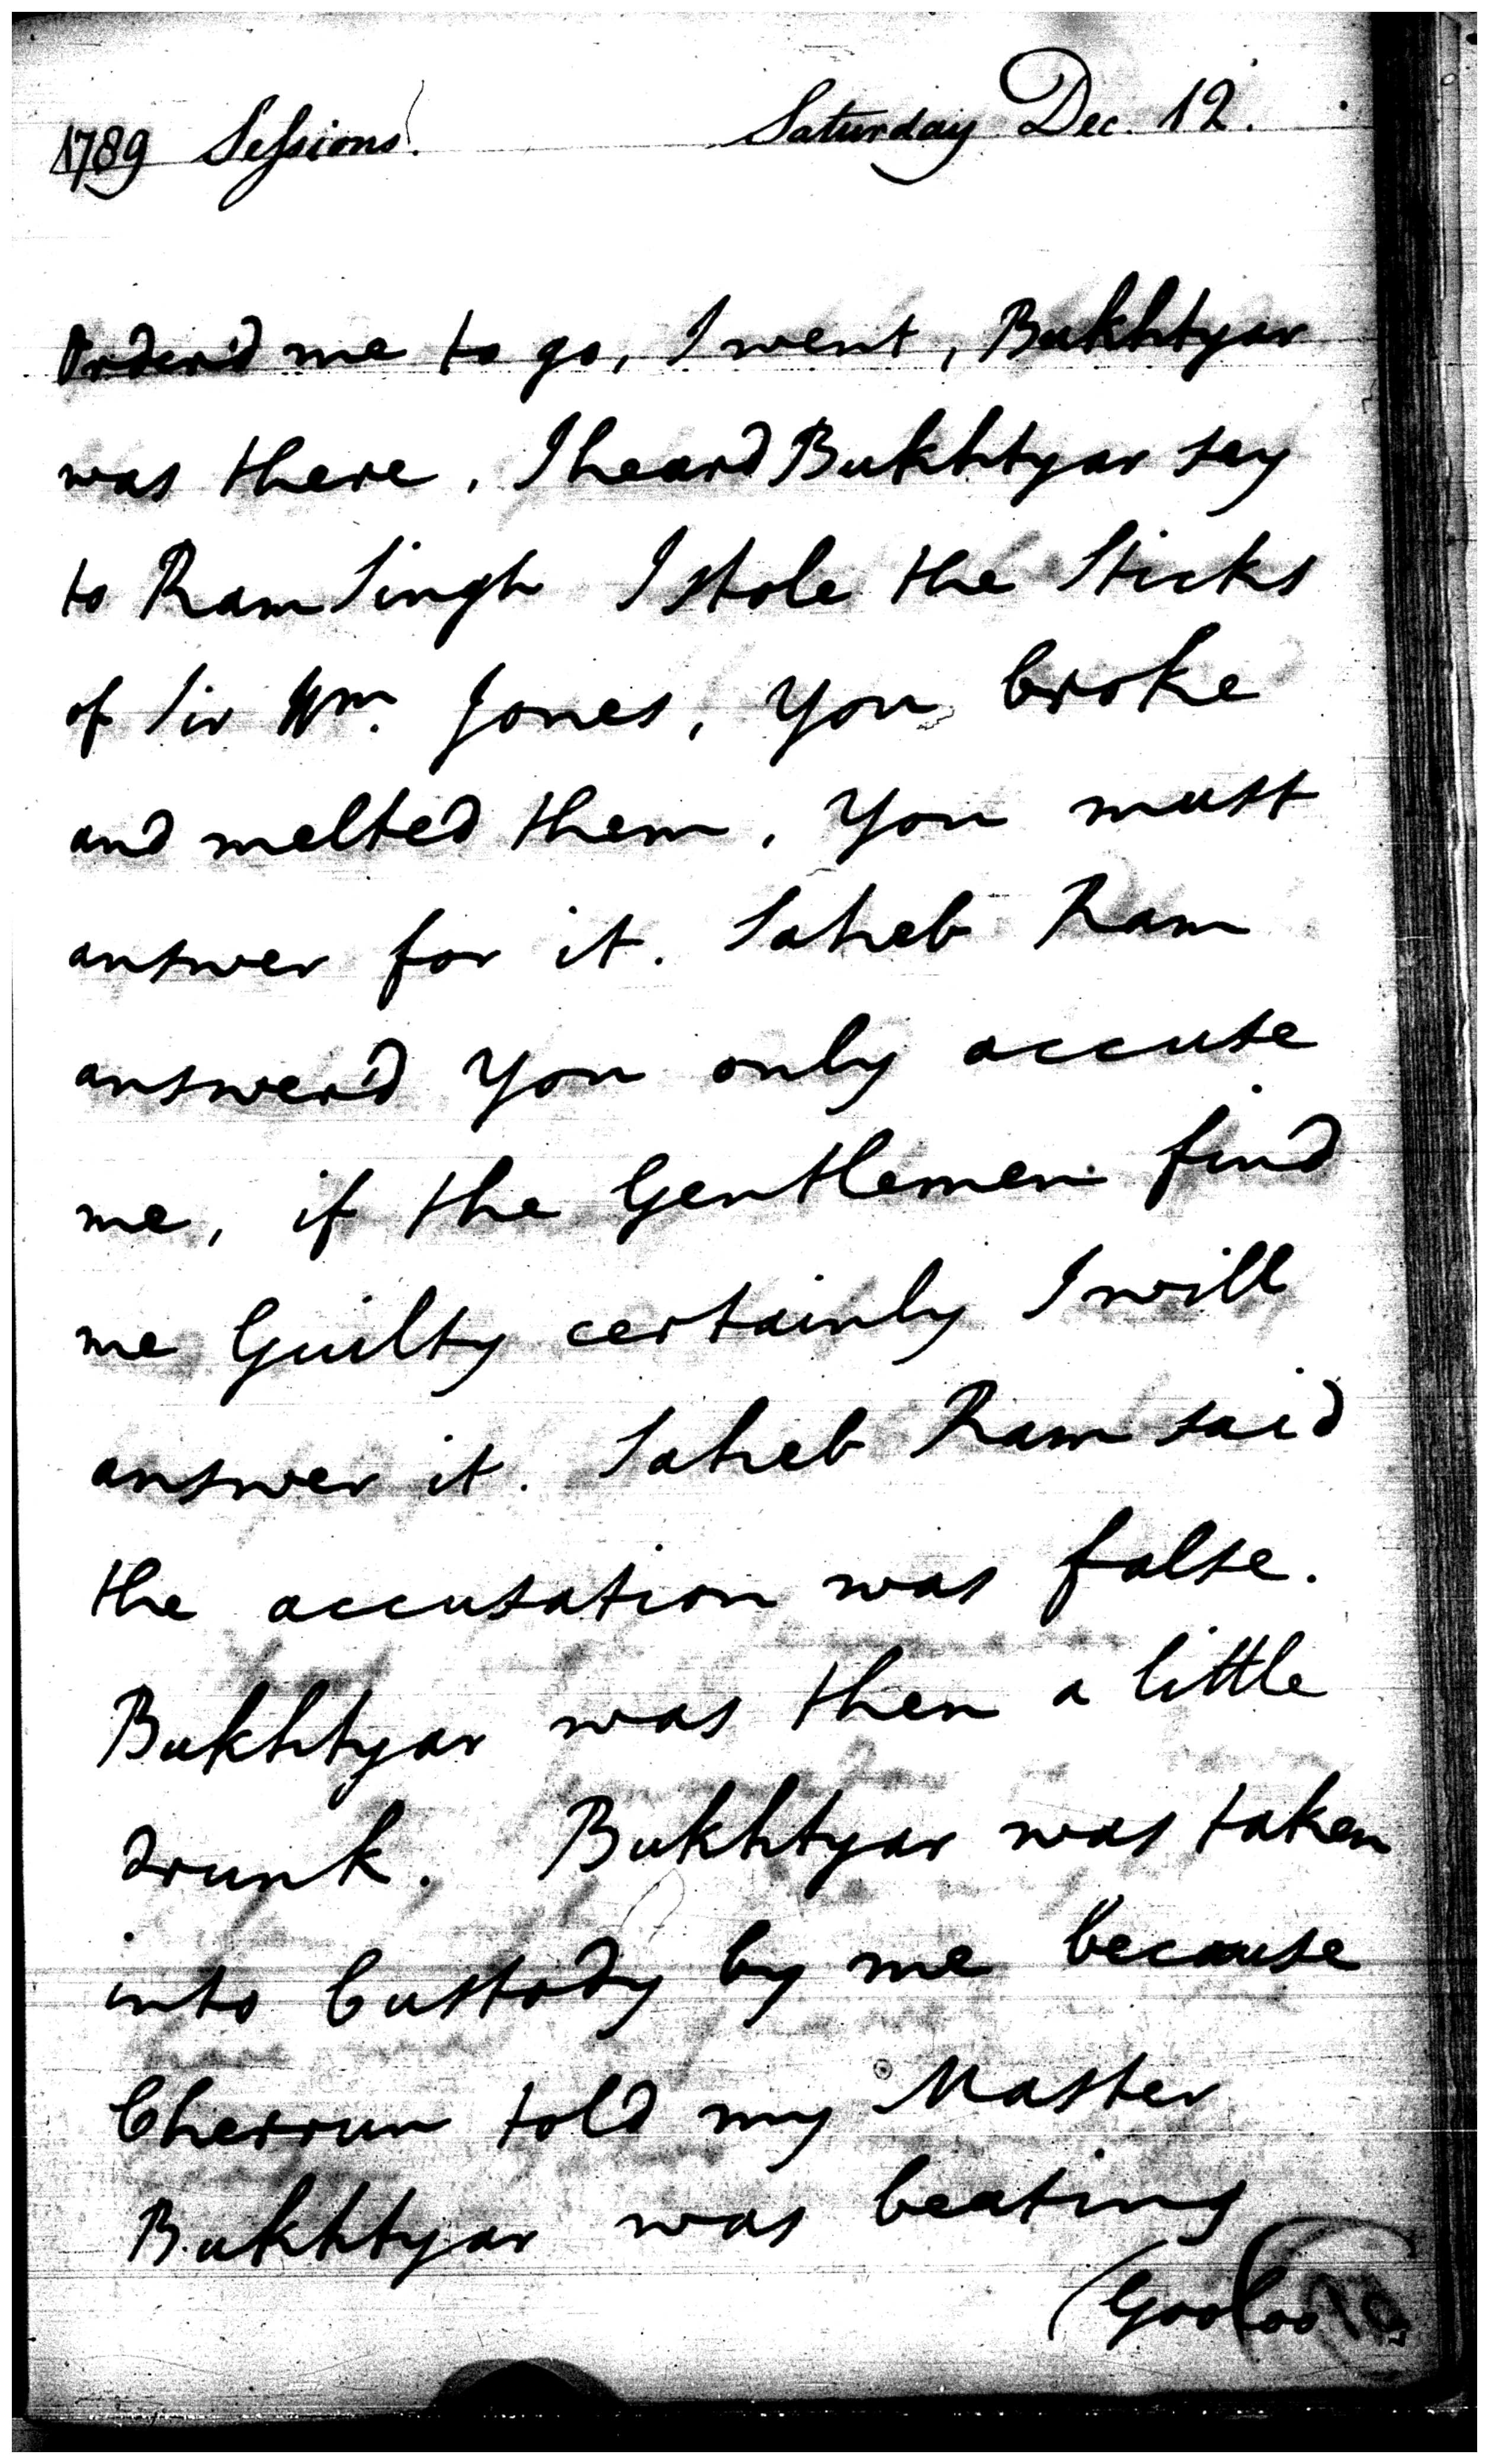 1789 Sessions. Saturday Dec. 12.
Order'd me to go, I went, Bukhtyar
was there, I heard Bukhtyar say
to Ram Singh I stole the Sticks
of Sir Wm. Jones, you broke
and melted them, you must
answer for it. Saheb Ram
answer'd you only accuse
me, if the Gentlemen find
me Guilty certainly I will
answer it. Saheb Ram said
the accusation was false.
Bukhtyar was then a little
drunk. Bukhtyar was taken
into Custody by me because
Cherrun told my Master
Bukhtyar was beating
(Gooloo